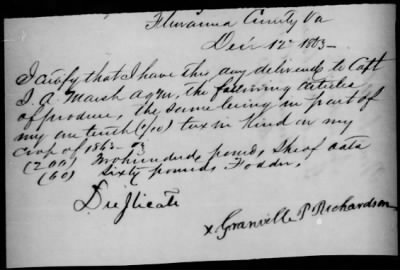 Fluvanna County Va
Decr 12th 1863 –
I certify that I have this day delivered to Capt
S. A. Marsh aqm, the following articles
of produce, the same being in part of
my one tenth (1/10) tax in Kind on my
crop of 1863
(200) Two hundred pounds, Sheaf oats
(60) Sixty pounds Fodder.
Duplicate
x Granville P Richardson